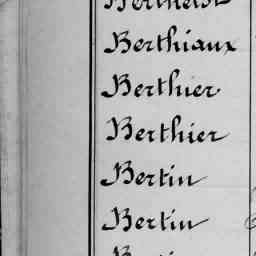 Berthiaux
Berthier
Berthier
Bertin
Bertin